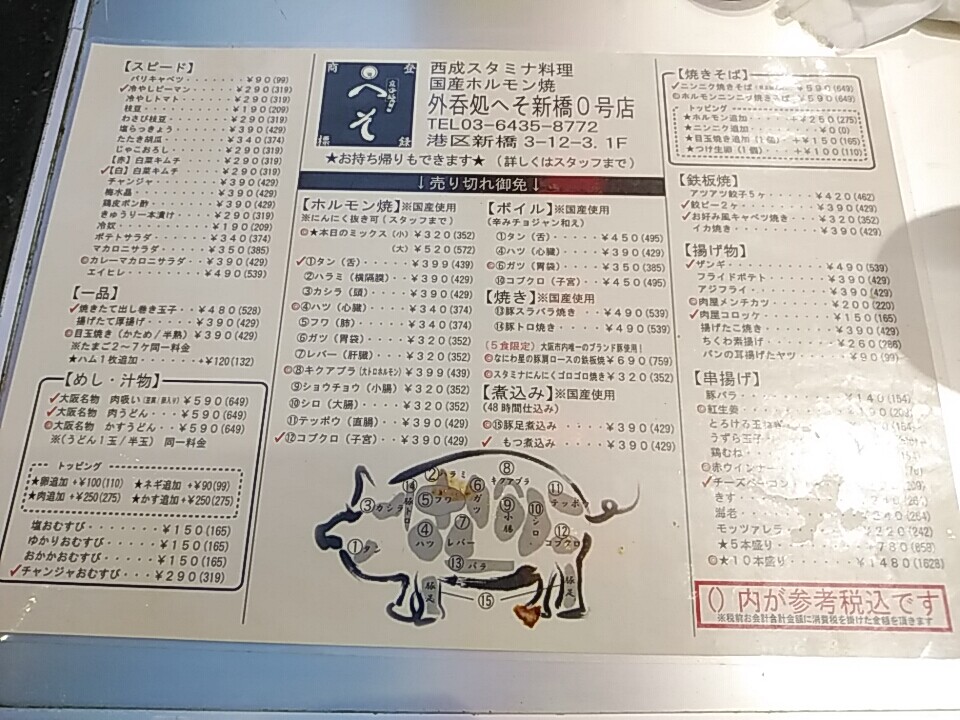 【スピード】
パリキャベツ・・・・・・・¥90(99)
✓冷やしピーマン・・・・・¥290(319)
冷やしトマト・・・・・・・¥290(319)
枝豆・・・・・・・・・・・¥190(209)
わさび枝豆・・・・・・・・¥290(319)
塩らっきょう・・・・・・・¥390(429)
たたき胡瓜・・・・・・・・¥340(374)
じゃこおろし・・・・・・・¥290(319)
【赤】白菜キムチ・・・・・¥290(319)
✓【白】白菜キムチ・・・・¥290(319)
チャンジャ・・・・・・・・¥390(429)
梅水晶・・・・・・・・・・¥390(429)
鶏皮ポン酢・・・・・・・・¥390(429)
きゅうり一本漬け・・・・・¥290(319)
冷奴・・・・・・・・・・・¥190(209)
ポテトサラダ・・・・・・・¥340(374)
マカロニサラダ・・・・・・¥350(385)
◎カレーマカロニサラダ・・¥390(429)
エイヒレ・・・・・・・・・¥490(539)
【一品】
✓焼きたて出し巻き玉子・・¥480(528)
揚げたて厚揚げ・・・・・・¥390(429)
◎目玉焼き(かため/半熟)¥390(429)
※たまご2〜7ケ同一料金
★ハム1枚追加・・・・・+¥120(132)
【めし・汁物】
✓大阪名物 肉吸い ¥590(649)
✓大阪名物 肉うどん・・・¥590(649)
◎大阪名物 かすうどん・・¥590(649)
※(うどん1玉/半玉) 同一料金
トッピング
★卵追加 +¥100(110) ★ネギ追加 +¥90(99)
★肉追加 +¥250(275) ★かす追加 +¥250(275)
塩おむすび・・・・・・¥150(165)
ゆかりおむすび・・・・¥150(165)
おかかおむすび・・・・¥150(165)
✓チャンジャおむすび・・・¥290(319)
商 登
へそ
標 録
西成スタミナ料理
国産ホルモン焼
外呑処へそ新橋0号店
TEL03-6435-8772
港区新橋 3-12-3. 1F
★お持ち帰りもできます★ (詳しくはスタッフまで)
↓売り切れ御免↓
【ホルモン焼】※国産使用
※にんにく抜き可(スタッフまで)
◎★本日のミックス (小) ¥320(352)
(大) ¥520(572)
✓①タン(舌)・・・・・¥399(439)
②ハラミ(横隔膜)・・・¥390(429)
③カシラ(頭)・・・・・¥390(429)
◎④ハツ(心臓)・・・・¥340(374)
⑤フワ(肺)・・・・・・¥340(374)
⑥ガツ(胃袋)・・・・・¥320(352)
⑦レバー(肝臓)・・・・¥320(352)
◎⑧キクアブラ(大トロホルモン)¥399(439)
⑨ショウチョウ(小腸)・¥320(352)
⑩シロ(大腸)・・・・・¥320(352)
⑪テッポウ(直腸)・・・¥390(429)
✓⑫コブクロ(子宮)・・¥390(429)
【ボイル】※国産使用
(辛みチョジャン和え)
①タン(舌)・・・・・¥450(495)
④ハツ(心臓)・・・・¥390(429)
◎⑥ガツ(胃袋)・・・¥350(385)
⑫コブクロ(子宮)・・¥450(495)
【焼き】※国産使用
⑬豚スラバラ焼き・・・¥490(539)
⑭豚トロ焼き・・・・・¥490(539)
(5食限定) 大阪市内唯一のブランド豚使用!
◎なにわ星の豚肩ロースの鉄板焼¥690(759)
◎スタミナにんにくゴロゴロ焼き¥320(352)
【煮込み】※国産使用
(48時間仕込み)
◎⑮豚足煮込み・・・・¥390(429)
✓ もつ煮込み・・・・・¥390(429)
①タン
②ハラミ
③カシラ
④ハツ
⑤フワ
⑥ガツ
⑦レバー
⑧キクアブラ
⑨小腸
⑩シロ
⑪テッポウ
⑫コブクロ
⑬バラ
⑭豚トロ
⑮
豚足
豚足
【焼きそば】
✓ニンニク焼きそば ¥590(649)
◎ホルモンニンニク焼きそば ¥590(649)
トッピング
★ホルモン追加・・・+¥250(275)
★ニンニク追加・・・¥0(0)
★目玉焼き追加(1個) +¥150(165)
★つけ生卵(1個) +¥100(110)
【鉄板焼】
アツアツ餃子5ヶ・・・¥420(462)
✓餃ピー2ヶ・・・・・¥390(429)
✓お好み風キャベツ焼き・¥320(352)
イカ焼き・・・・・・・¥390(429)
【揚げ物】
✓ザンギ・・・・・・・¥490(539)
フライドポテト・・・・¥390(429)
アジフライ・・・・・・¥390(429)
◎肉屋メンチカツ・・・¥200(220)
✓肉屋コロッケ・・・・¥150(165)
揚げたこ焼き・・・・・¥390(429)
ちくわ素揚げ・・・・・¥260(286)
パンの耳揚げたヤツ・・¥90(99)
【串揚げ】
豚バラ・・・・・・・¥140(154)
◎紅生姜・・・・・・¥190(209)
とろける玉
うずら玉子
鶏むね
◎赤ウインナー
✓チーズベーコン
きす
海老・・・・・・・¥240(264)
モッツアレラ・・・¥220(242)
★5本盛り・・・・¥780(858)
◎★10本盛り・・・¥1480(1628)
()内が参考税込です
※税前お会計合計金額に消費税を掛けた金額を頂きます